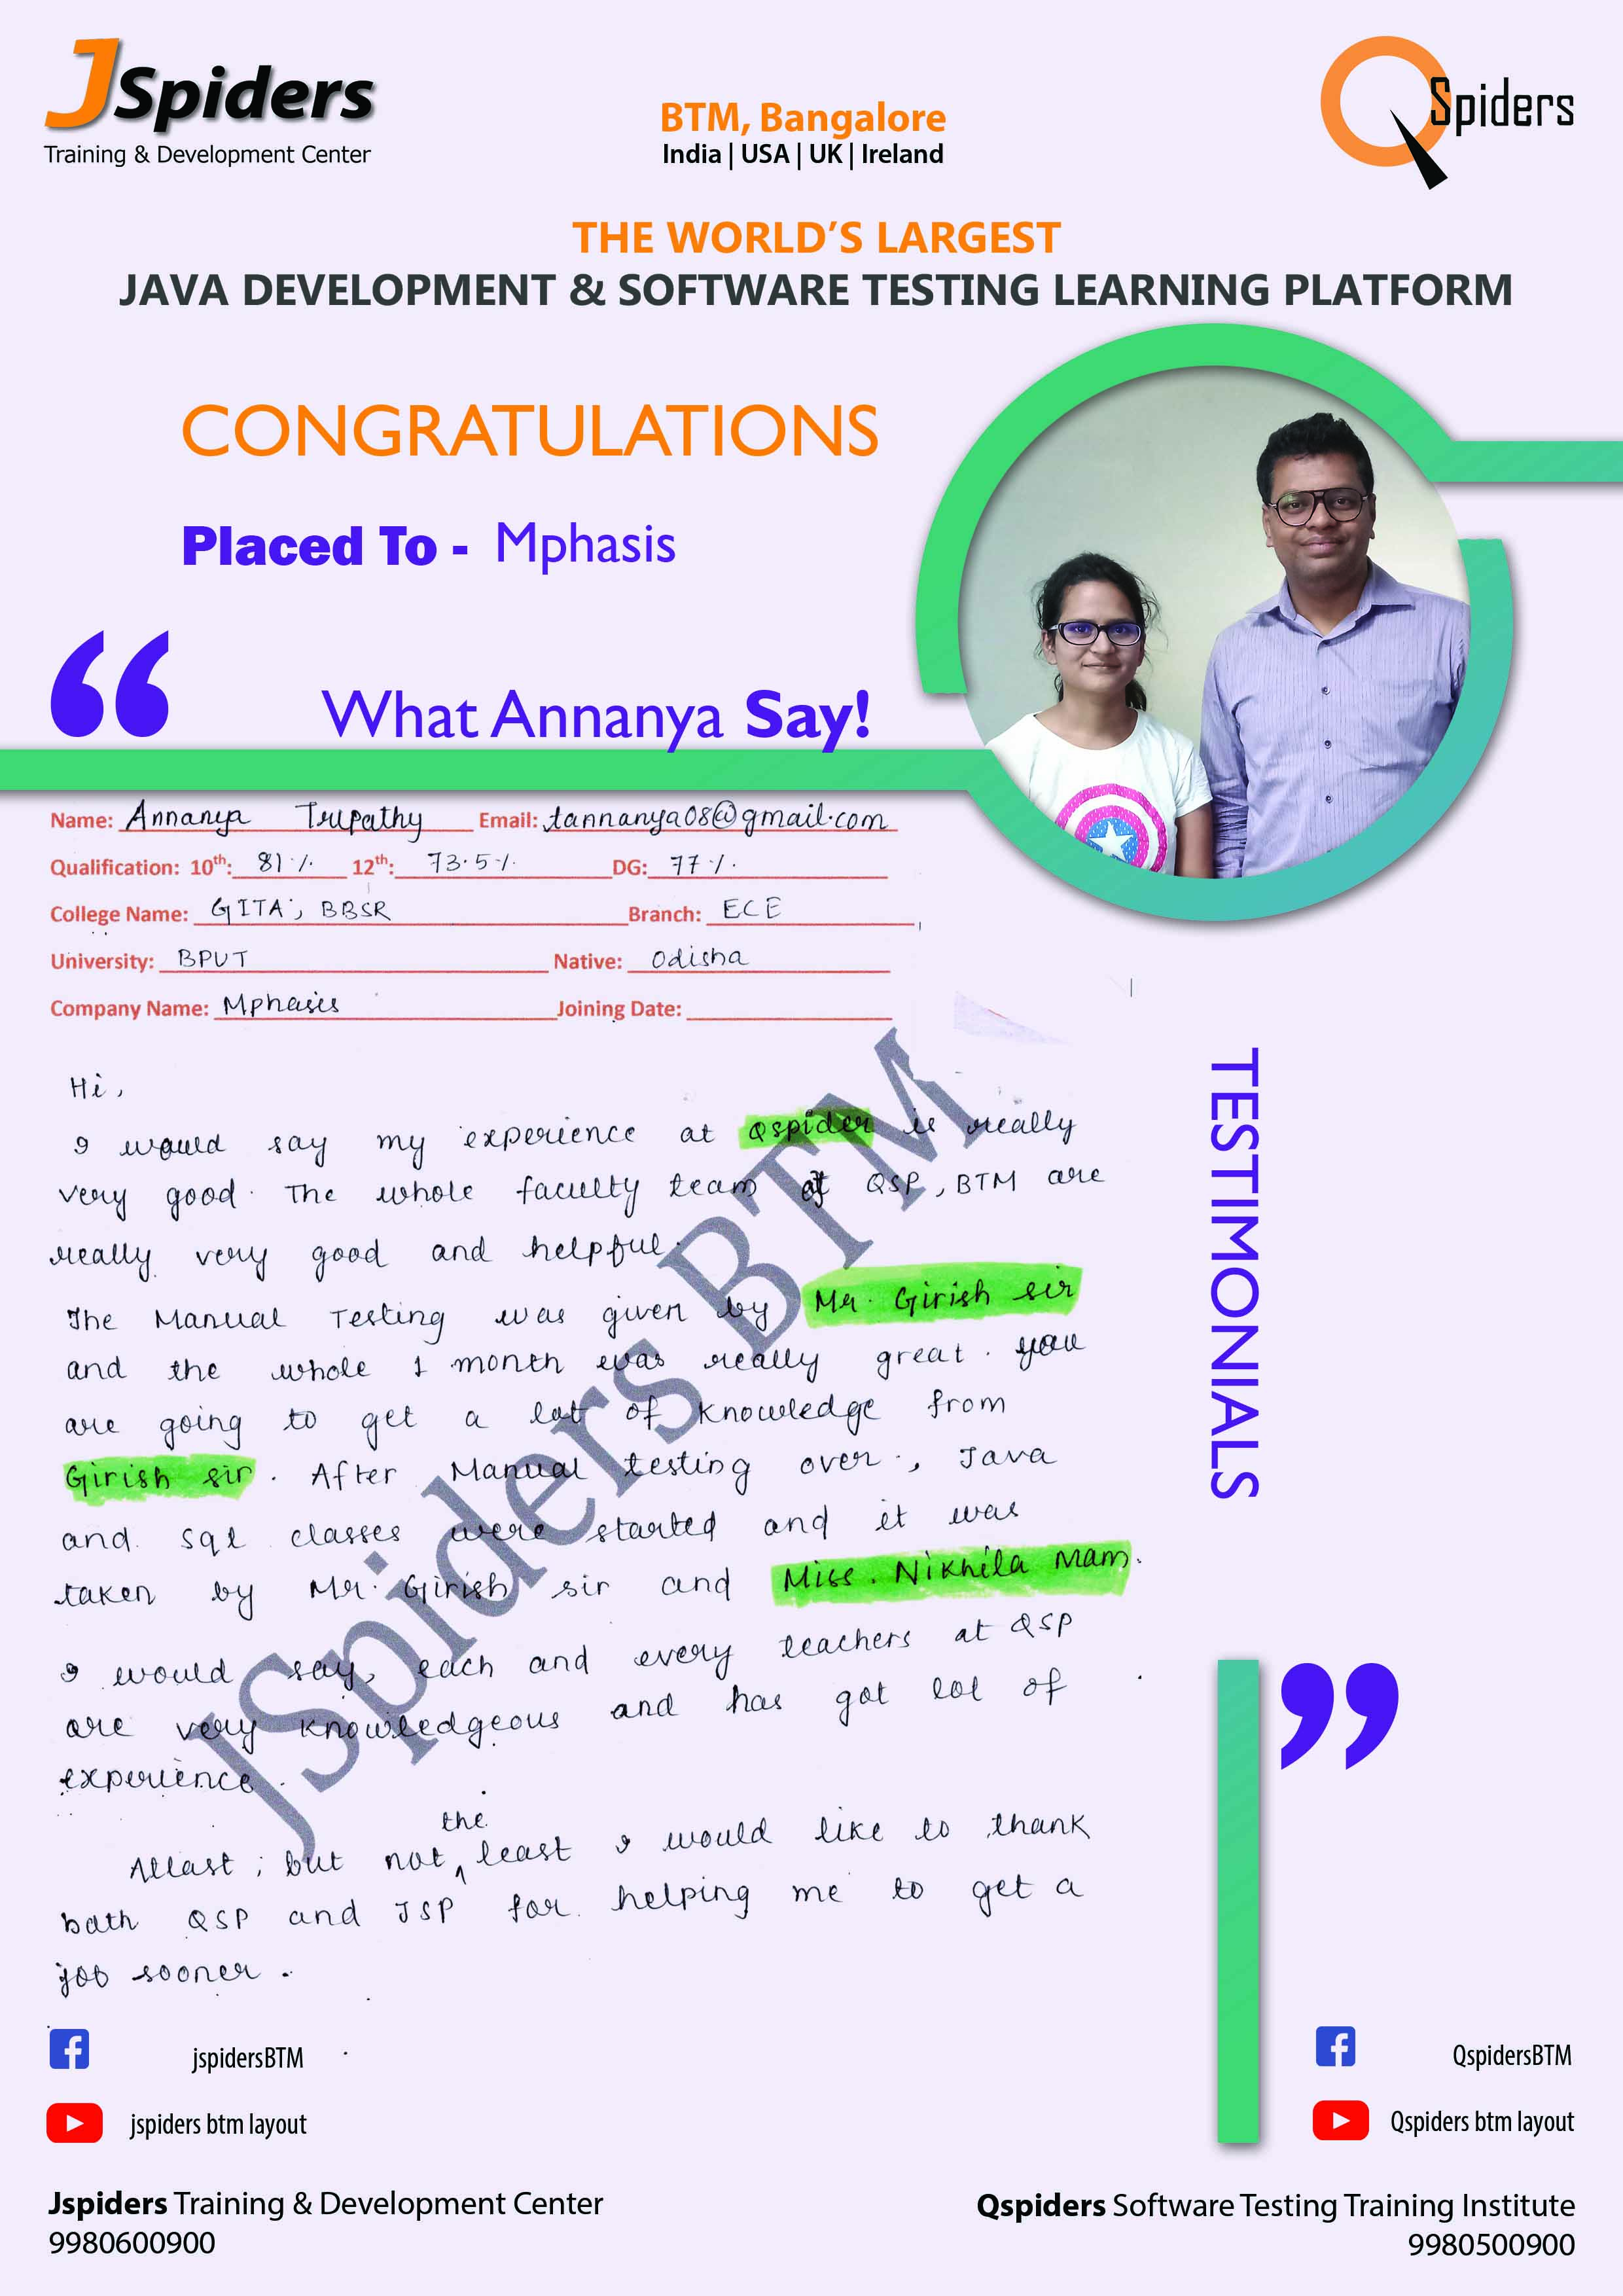 JSpiders
Training & Development Center
BTM, Bangalore
India | USA | UK | Ireland
QSpiders
THE WORLD'S LARGEST
JAVA DEVELOPMENT & SOFTWARE TESTING LEARNING PLATFORM
CONGRATULATIONS
Placed To - Mphasis
“
What Annanya Say!
Name: Annanya Tripathy Email: tannanya08@gmail.com
Qualification: 10th: 81% 12th: 73.5% DG: 77%.
College Name: GITA, BBSR Branch: ECE
University: BPUT Native: Odisha
Company Name: Mphasis Joining Date:
Hi,
I would say my experience at Qspider is really
very good. The whole faculty team of QSP, BTM are
really very good and helpful.
The Manual Testing was given by Mr. Girish sir
and the whole 1 month was really great. you
are going to get a lot of knowledge from
Girish sir. After Manual testing over, Java
and sql classes were started and it was
taken by Mr. Girish sir and Miss. Nikhila Mam.
I would say, each and every teachers at QSP
are very knowledgeous and has got lot of
experience.
Atlast, but not the least I would like to thank
both QSP and JSP for helping me to get a
job sooner.
JSpiders BTM
TESTIMONIALS
”
jspidersBTM
jspiders btm layout
QspidersBTM
Qspiders btm layout
Jspiders Training & Development Center
9980600900
Qspiders Software Testing Training Institute
9980500900